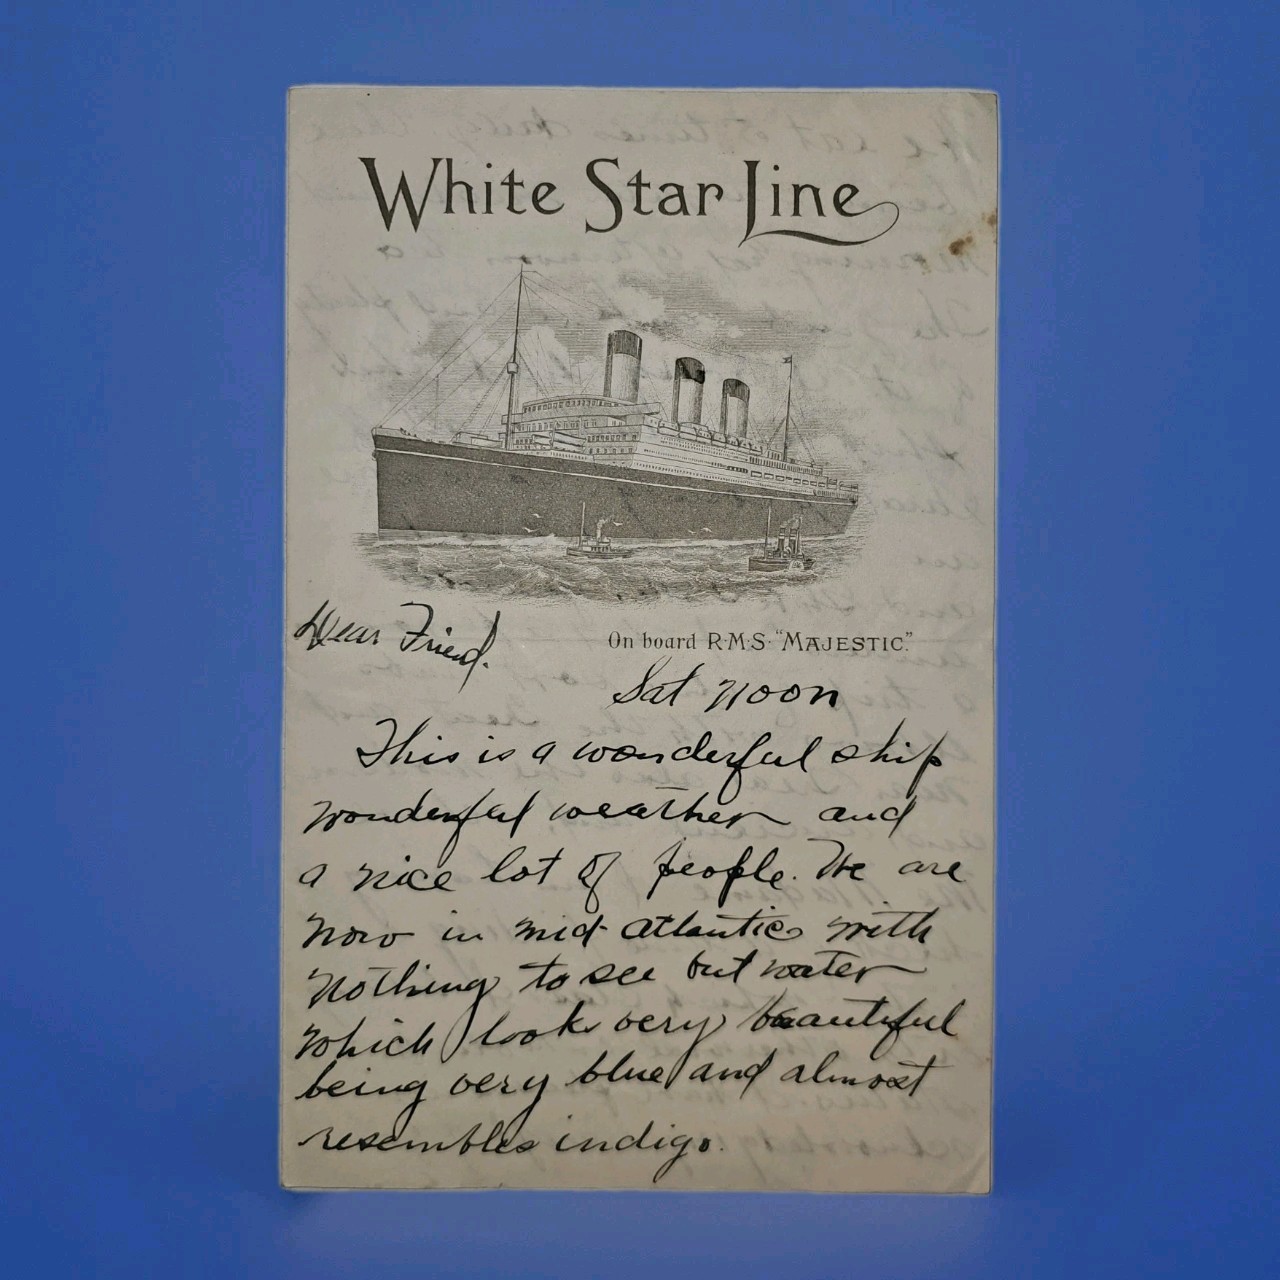 White Star Line
Dear Friend.
On board R·M·S· "MAJESTIC."
Sat Noon
This is a wonderful ship
wonderful weather and
a nice lot of people. We are
now in mid-atlantic with
nothing to see but water
which looks very beautiful
being very blue and almost
resembles indigo.